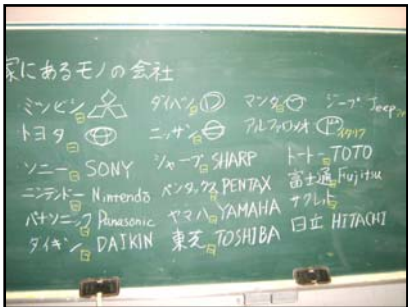 家にあるモノの会社
ミツビシ 日 ダイハツ 日 マツダ 日 ジープ Jeep
トヨタ 日 ニッサン 日 アルファロメオ イタリア
ソニー 日 SONY シャープ 日 SHARP トートー 日 TOTO
ニンテンドー 日 Nintendo ペンタックス 日 PENTAX 富士通 日 Fujitsu
パナソニック 日 Panasonic ヤマハ 日 YAMAHA サクレ
ダイキン 日 DAIKIN 東芝 日 TOSHIBA 日立 日 HITACHI